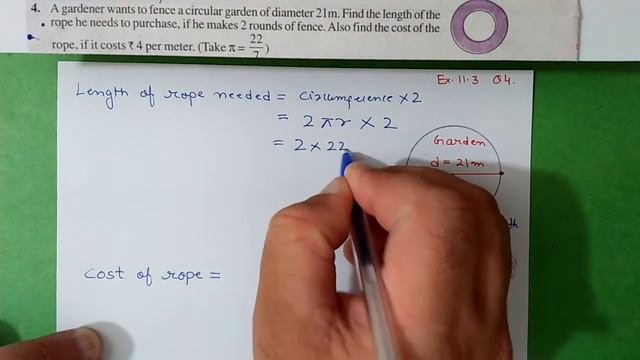 4. A gardener wants to fence a circular garden of diameter 21m. Find the length of the
rope he needs to purchase, if he makes 2 rounds of fence. Also find the cost of the
rope, if it costs ₹ 4 per meter. (Take π = 22/7)
Ex. 11.3 Q4.
Length of rope needed = Circumference × 2
= 2πr × 2
= 2 × 22
Garden
d = 21m
Cost of rope =